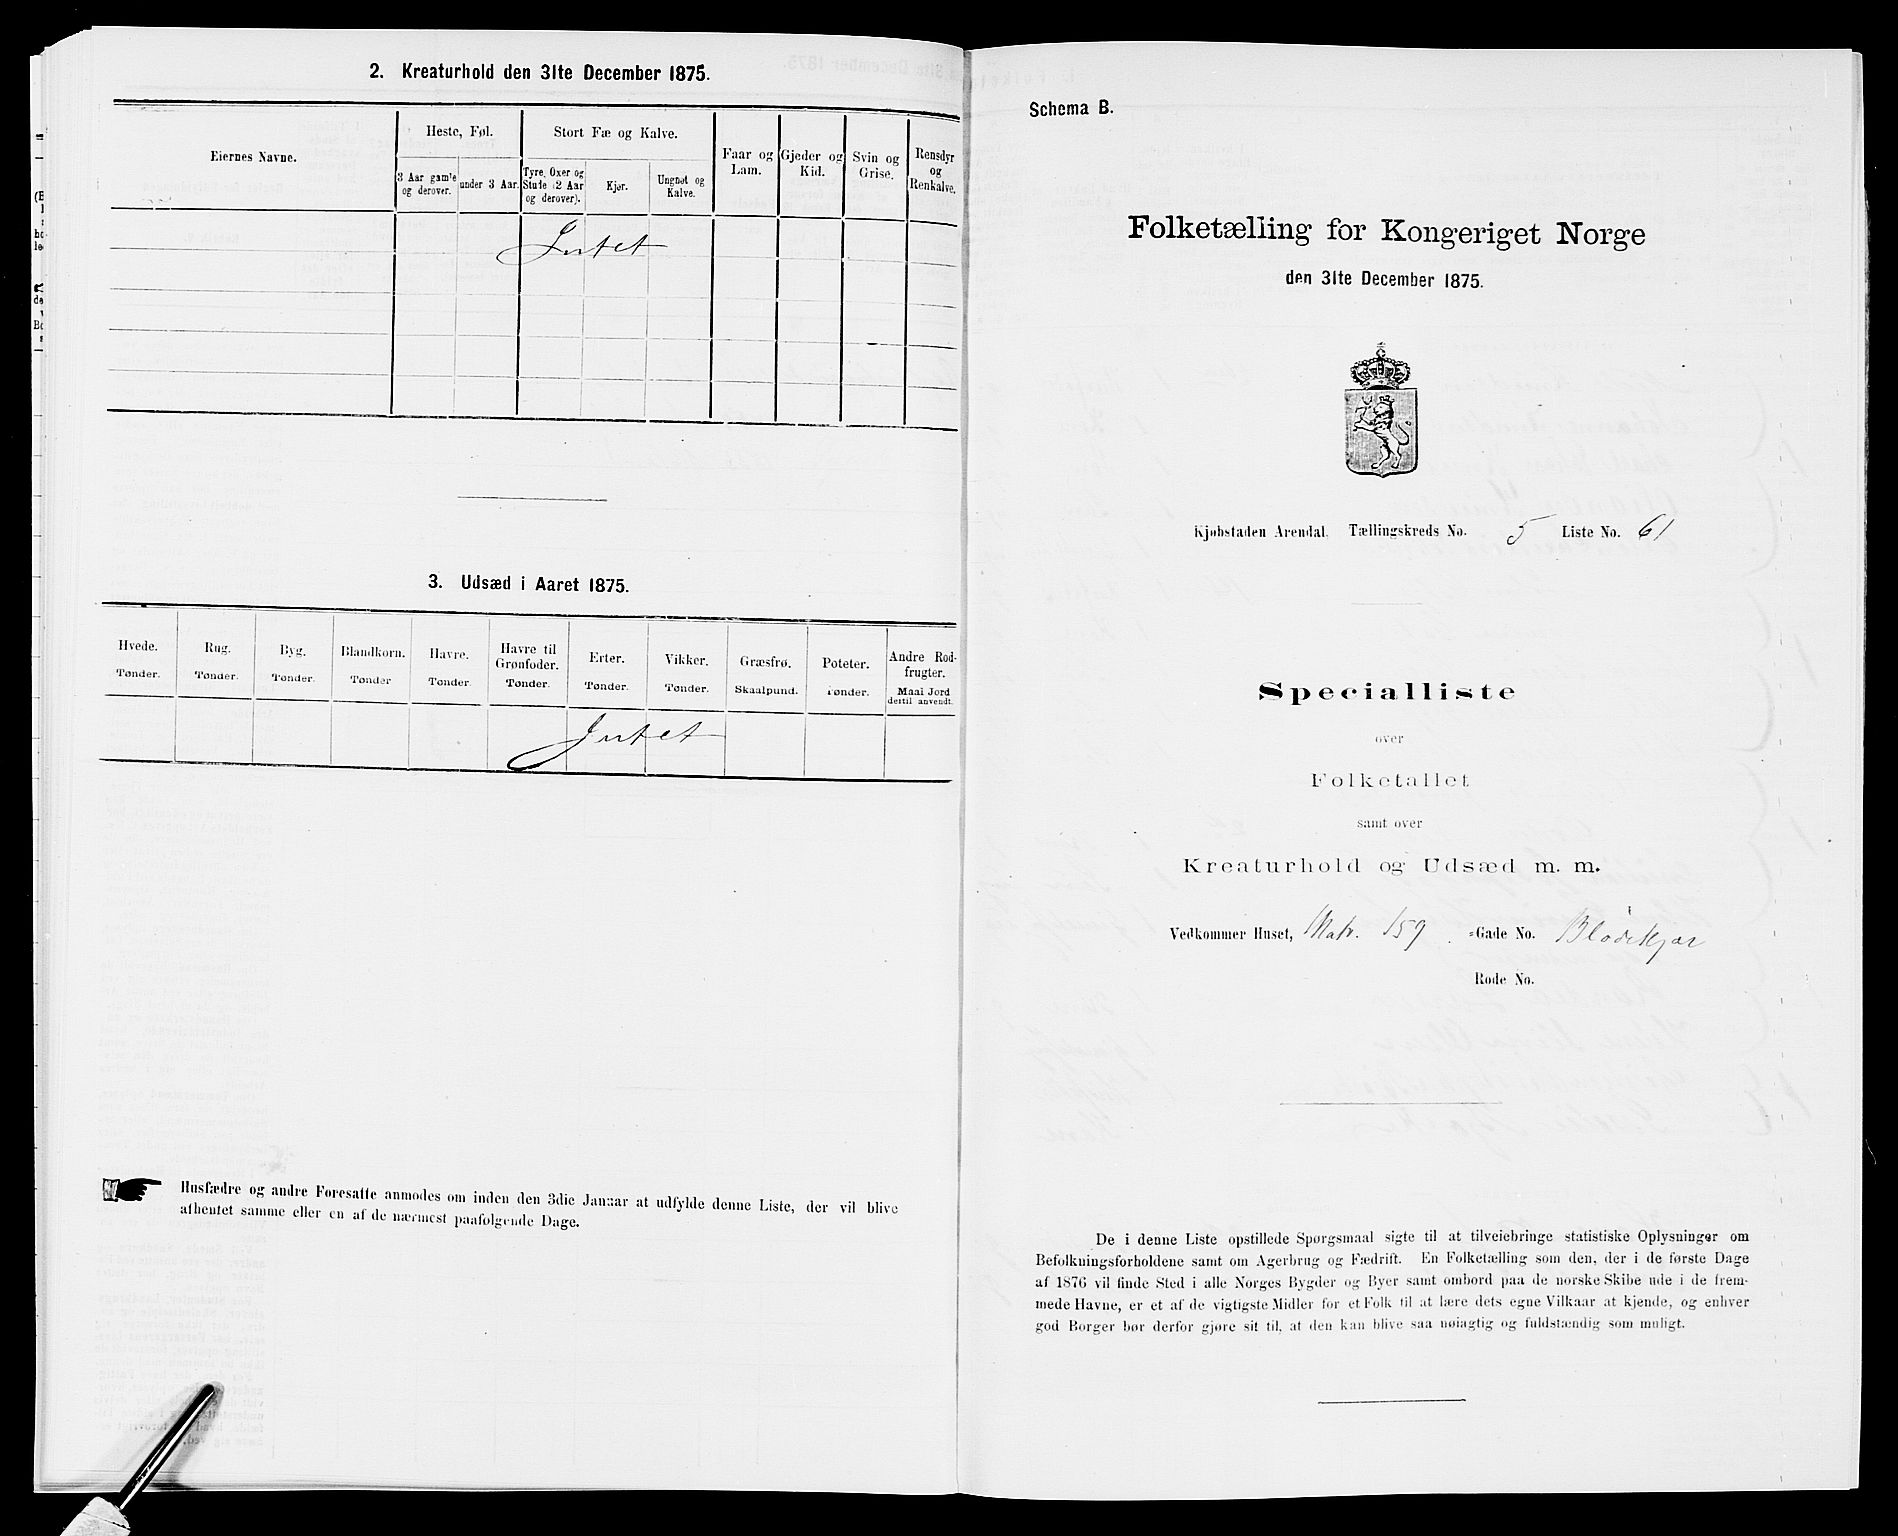 2. Kreaturhold den 31te December 1875.
Eiernes Navne.
Heste, Føl.
Stort Fæ og Kalve.
3 Aar gamle og derover.
under 3 Aar.
Tyre, Oxer og Stude (2 Aar og derover).
Kjør.
Ungnøt og Kalve.
Faar og Lam.
Gjeder og Kid.
Svin og Grise.
Rensdyr og Renkalve.
Intet
3. Udsæd i Aaret 1875.
Hvede. Rug. Byg. Blandkorn. Havre. Havre til Grønfoder. Erter. Vikker. Græsfrø. Poteter. Andre Rodfrugter.
Tønder. Tønder. Tønder. Tønder Tønder. Tønder. Tønder. Tønder. Skaalpund. Tønder. Maal Jord dertil anvendt.
Intet
Husfædre og andre Foresatte anmodes om inden den 3die Januar at udfylde denne Liste, der vil blive
afhentet samme eller en af de nærmest paafølgende Dage.
Schema B.
Folketælling for Kongeriget Norge
den 31te December 1875.
Kjøbstaden Arendal. Tællingskreds No. 5 Liste No. 61
Specialliste
over
Folketallet
samt over
Kreaturhold og Udsæd m. m.
Vedkommer Huset, Matr. 159. -Gade No. Blødekjær
Rode No.
De i denne Liste opstillede Spørgsmaal sigte til at tilveiebringe statistiske Oplysninger om
Befolkningsforholdene samt om Agerbrug og Fædrift. En Folketælling som den, der i de første Dage
af 1876 vil finde Sted i alle Norges Bygder og Byer samt ombord paa de norske Skibe ude i de frem-
mede Havne, er et af de vigtigste Midler for et Folk til at lære dets egne Vilkaar at kjende, og enhver
god Borger bør derfor gjøre sit til, at den kan blive saa nøiagtig og fuldstændig som muligt.